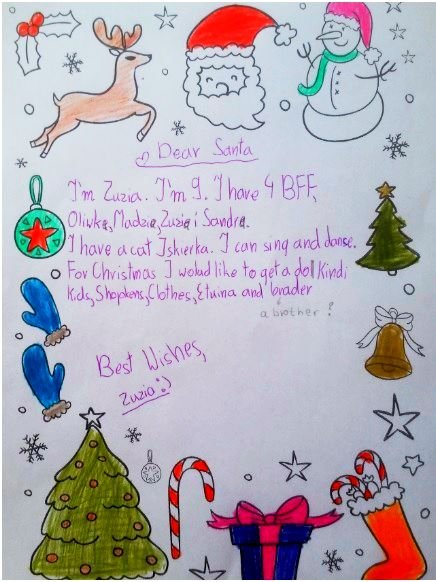 Dear Santa
I'm Zuzia. I'm 9. I have 4 BFF,
Oliwka, Madzia, Zuzia i Sandra.
I have a cat Iskierka. I can sing and danse.
For Christmas I wolud like to get a doll Kindi
Kids, Shopkens, Clothes, Etuina and brader
a brother?
Best Wishes,
Zuzia :)